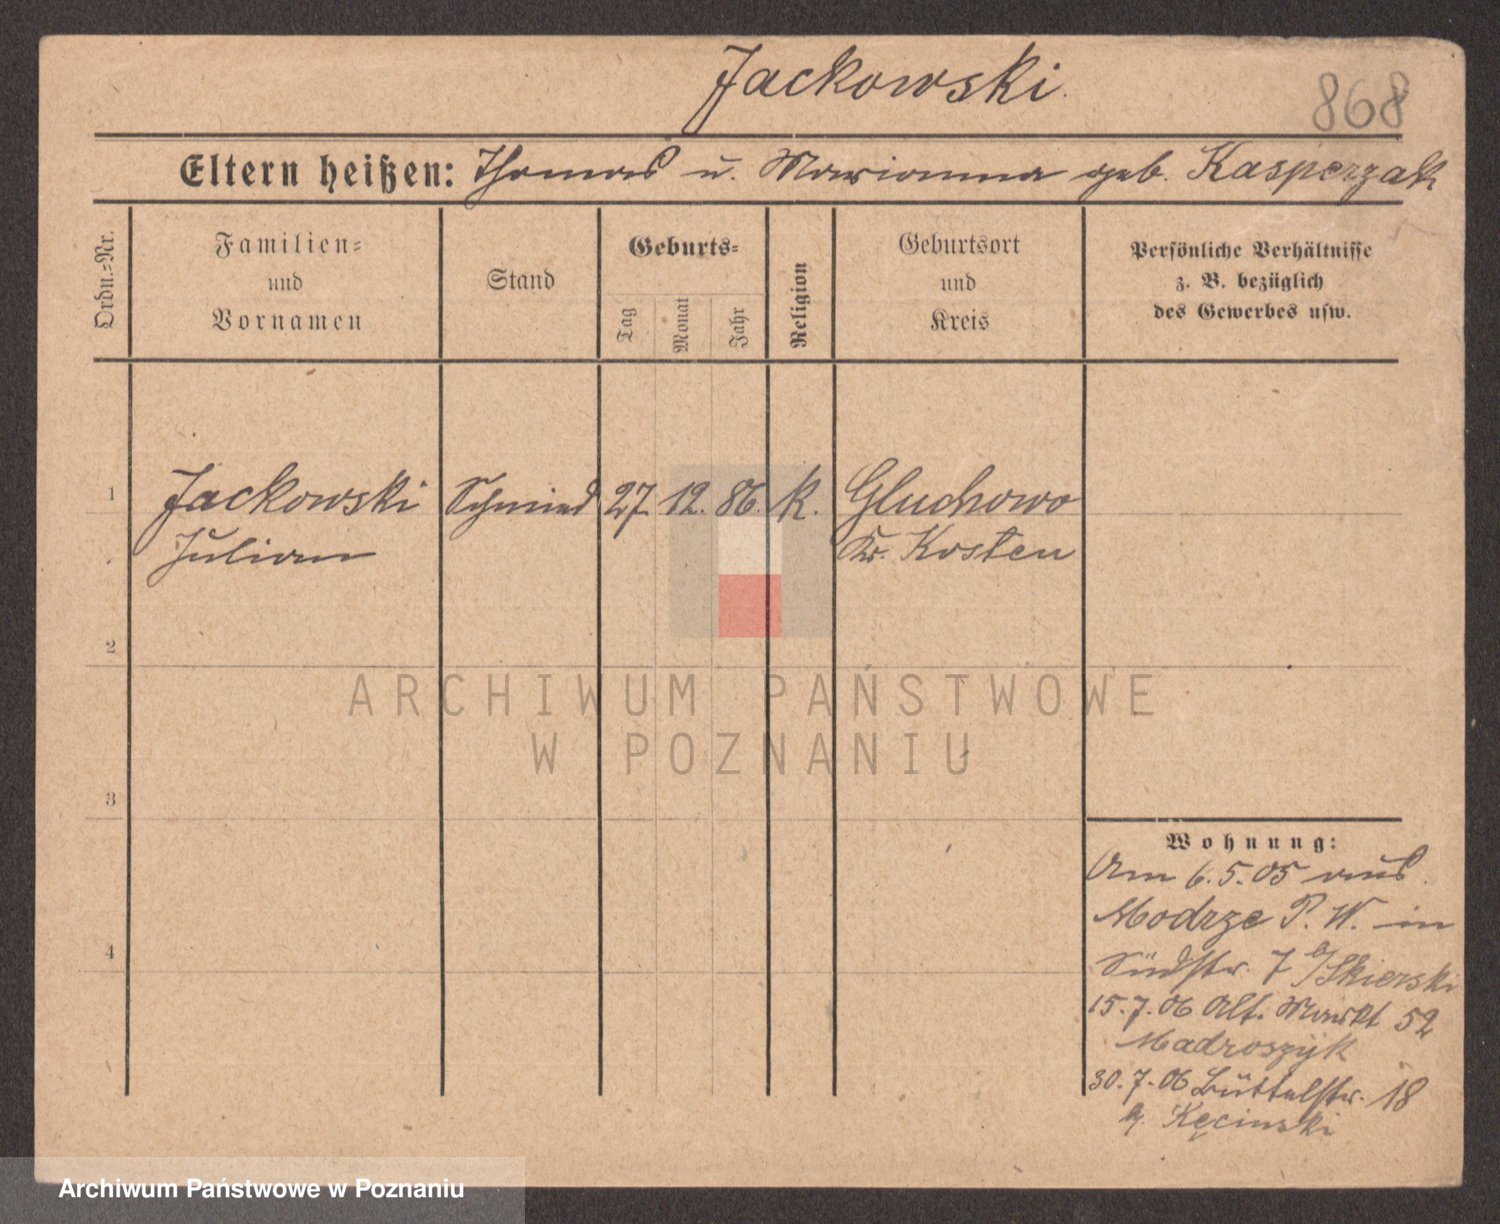 Jackowski.
868
Eltern heißen: Thomas u. Marianna geb. Kasperzak
Ordn.=Nr.
Familien=
und
Vornamen
Stand
Geburts=
Tag
Monat
Jahr
Religion
Geburtsort
und
Kreis
Persönliche Verhältnisse
z. B. bezüglich
des Gewerbes usw.
1 Jackowski Schmied 27. 12. 86. K. Gluchowo
Julian Kr. Kosten
2
ARCHIWUM PAŃSTWOWE
W POZNANIU
3
Wohnung:
Am 6.5.05 aus
Modrze P. W. in
4
Südstr. 7 b/Skierski
15.7.06 Alt. Markt 52
Madroszyk
30.7.06 Büttelstr. 18
b. Kęcinski
Archiwum Państwowe w Poznaniu